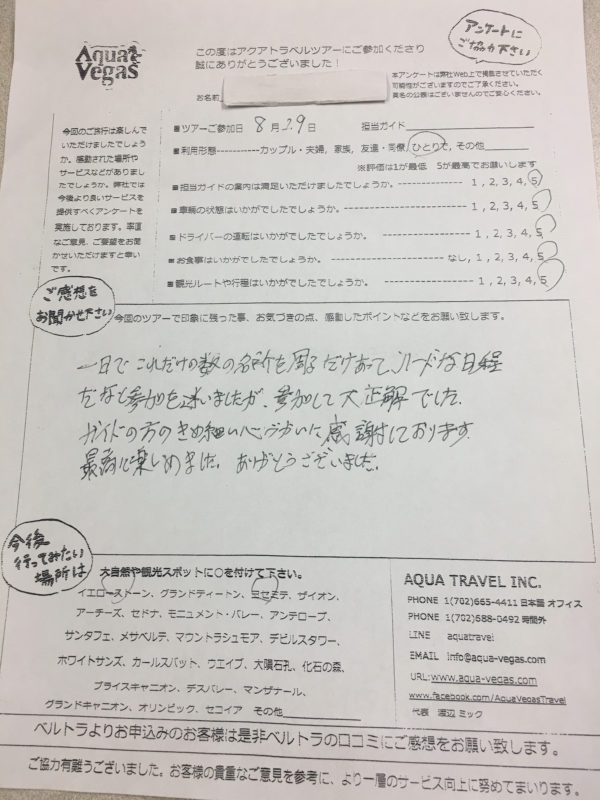 Aqua
Vegas
この度はアクアトラベルツアーにご参加くださり
誠にありがとうございました！
アンケートに
ご協力下さい
本アンケートは弊社Web上で掲載させていただく
可能性がございますのでご了承ください。
真名の公表はございませんのでご安心ください。
お名前
今回のご旅行は楽しんで
いただけましたでしょう
か。感動された場所や
サービスなどがありまし
たでしょうか。弊社では
今後より良いサービスを
提供すべくアンケートを
実施しております。率直
なご意見、ご要望をお聞
かせいただけますと幸い
です。
■ツアーご参加日 8月29日 担当ガイド
■利用形態-----------カップル・夫婦, 家族, 友達・同僚, ひとりで, その他
※評価は1が最低 5が最高でお願いします
■担当ガイドの案内は満足いただけましたでしょうか。-------------- 1, 2, 3, 4, 5
■車輌の状態はいかがでしたでしょうか。-------------------- 1, 2, 3, 4, 5
■ドライバーの運転はいかがでしたでしょうか。 -------------- 1, 2, 3, 4, 5
■お食事はいかがでしたでしょうか。-------------------- なし, 1, 2, 3, 4, 5
■観光ルートや行程はいかがでしたでしょうか。---------------- 1, 2, 3, 4, 5
ご感想を
お聞かせ下さい
今回のツアーで印象に残った事、お気づきの点、感動したポイントなどをお願い致します。
一日でこれだけの数の名所を周るだけあって、ハードな日程
だなと参加を迷いましたが、参加して大正解でした。
ガイドの方のきめ細い心づかいに感謝しております。
最高に楽しめました。ありがとうございました。
今後
行ってみたい
場所は
大自然や観光スポットに○を付けて下さい。
イエローストーン、グランドティートン、ヨセミテ、ザイオン、
アーチーズ、セドナ、モニュメント・バレー、アンテロープ、
サンタフェ、メサベルデ、マウントラシュモア、デビルスタワー、
ホワイトサンズ、カールスバット、ウエイブ、大隕石孔、化石の森、
ブライスキャニオン、デスバレー、マンザナール、
グランドキャニオン、オリンピック、セコイア その他
AQUA TRAVEL INC.
PHONE 1(702)665-4411 日本語 オフィス
PHONE 1(702)688-0492 時間外
LINE aquatravel
EMAIL info@aqua-vegas.com
URL:www.aqua-vegas.com
www.facebook.com/AquaVegasTravel
代表 渡辺 ミック
ベルトラよりお申込みのお客様は是非ベルトラの口コミにご感想をお願い致します。
ご協力有難うございました。お客様の貴重なご意見を参考に、より一層のサービス向上に努めてまいります。